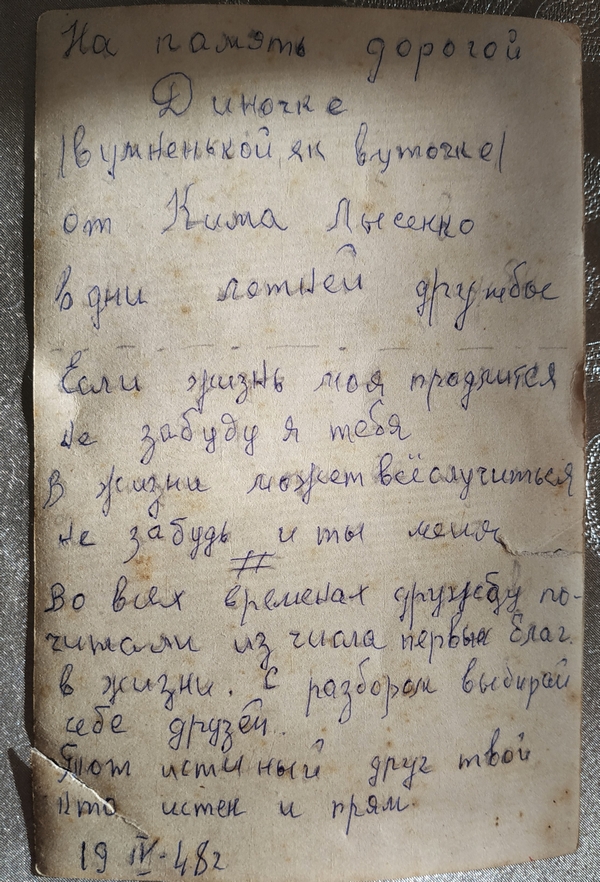 На память дорогой
Диночке
/вумненькой, як вуточке/
от Кима Лысенко
в дни летней дружбы
Если жизнь моя продлится
Не забуду я тебя
В жизни может всё случиться
Не забудь и ты меня
//
Во всех временах дружбу по-
читали из числа первых благ
в жизни. С разбором выбирай
себе друзей.
Тот истиный друг твой
Кто истен и прям.
19 IV-48г